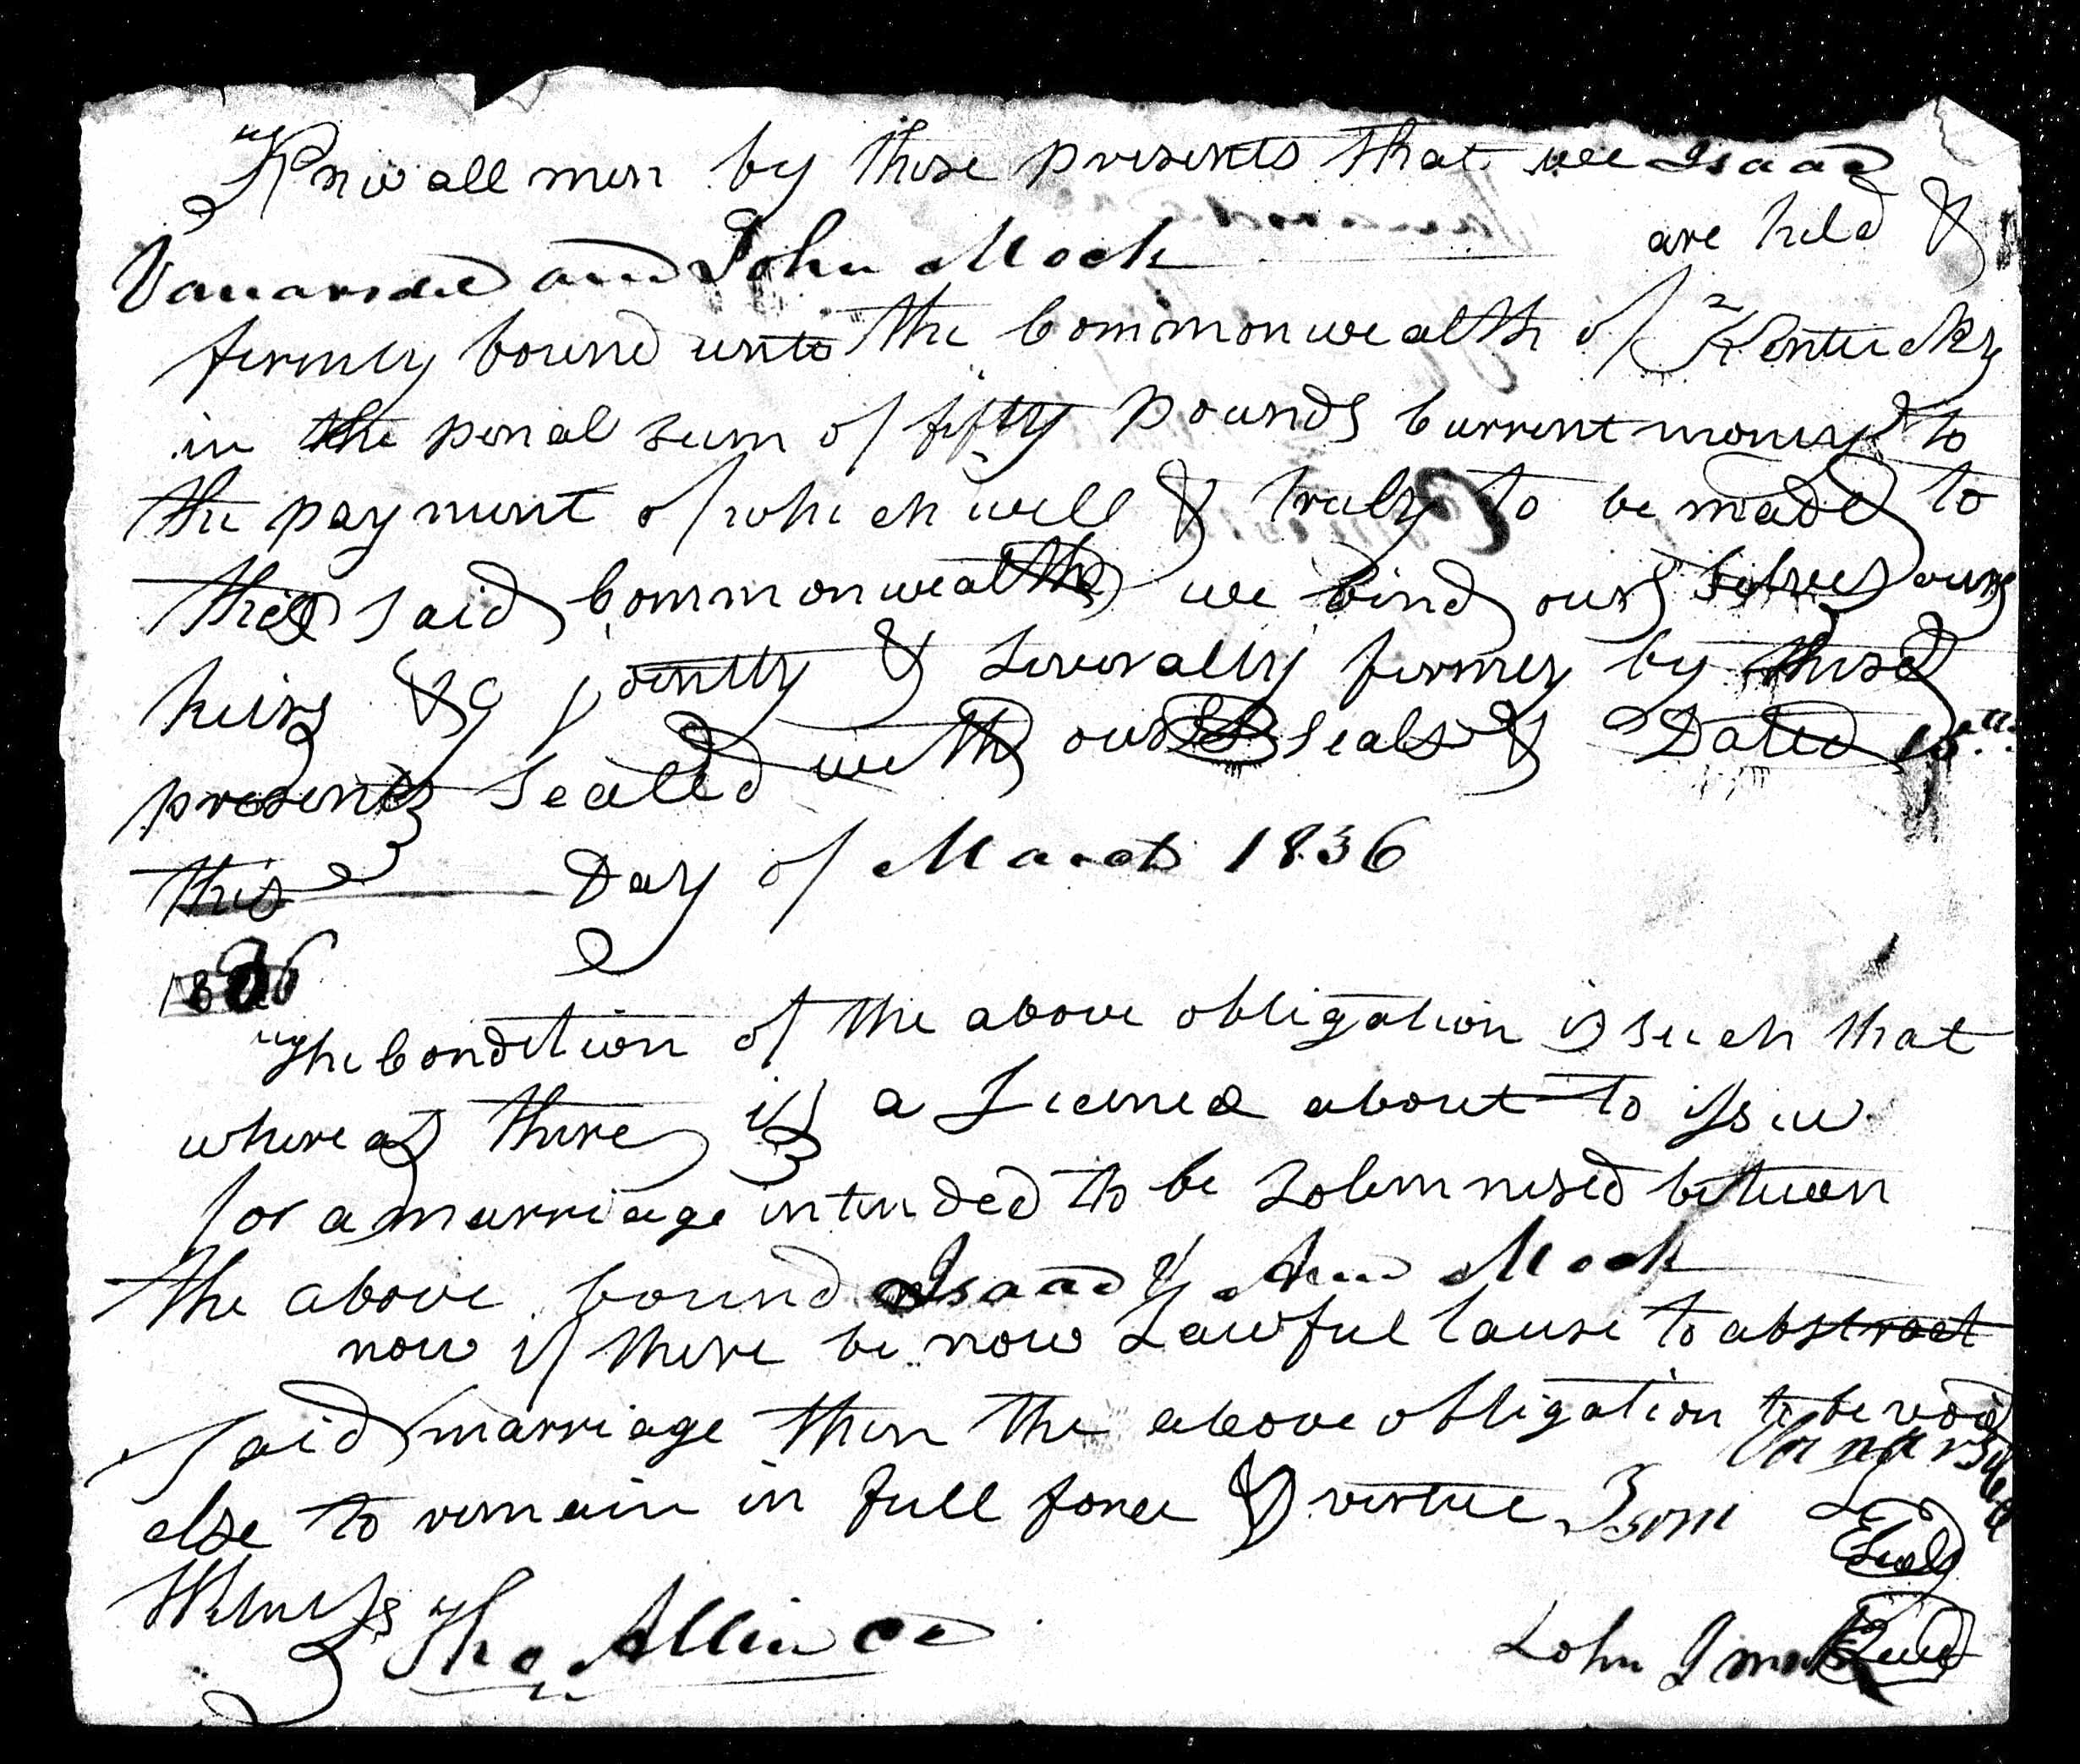 Know all men by these presents that we Isaac
Vanarsdel and John Mock are held &
firmly bound unto the Commonwealth of Kentucky
in the penal sum of fifty pounds Current money to
the payment of which well & truly to be made to
the said Commonwealth we bind our selves our
heirs &c jointly & severally firmly by these
presents Sealed with our seals & Dated 15th
this Day of March 1836
1836
The Condition of the above obligation is such that
whereas there is a License about to issue
for a marriage intended to be Solemnised between
the above bound Isaac & Ann Mock
now if there be now Lawful Cause to abstract
said marriage then the above obligation to be void
else to remain in full force & virtue Vanarsdel
Seal
Witness Tho Allin CC
John J mock Seal